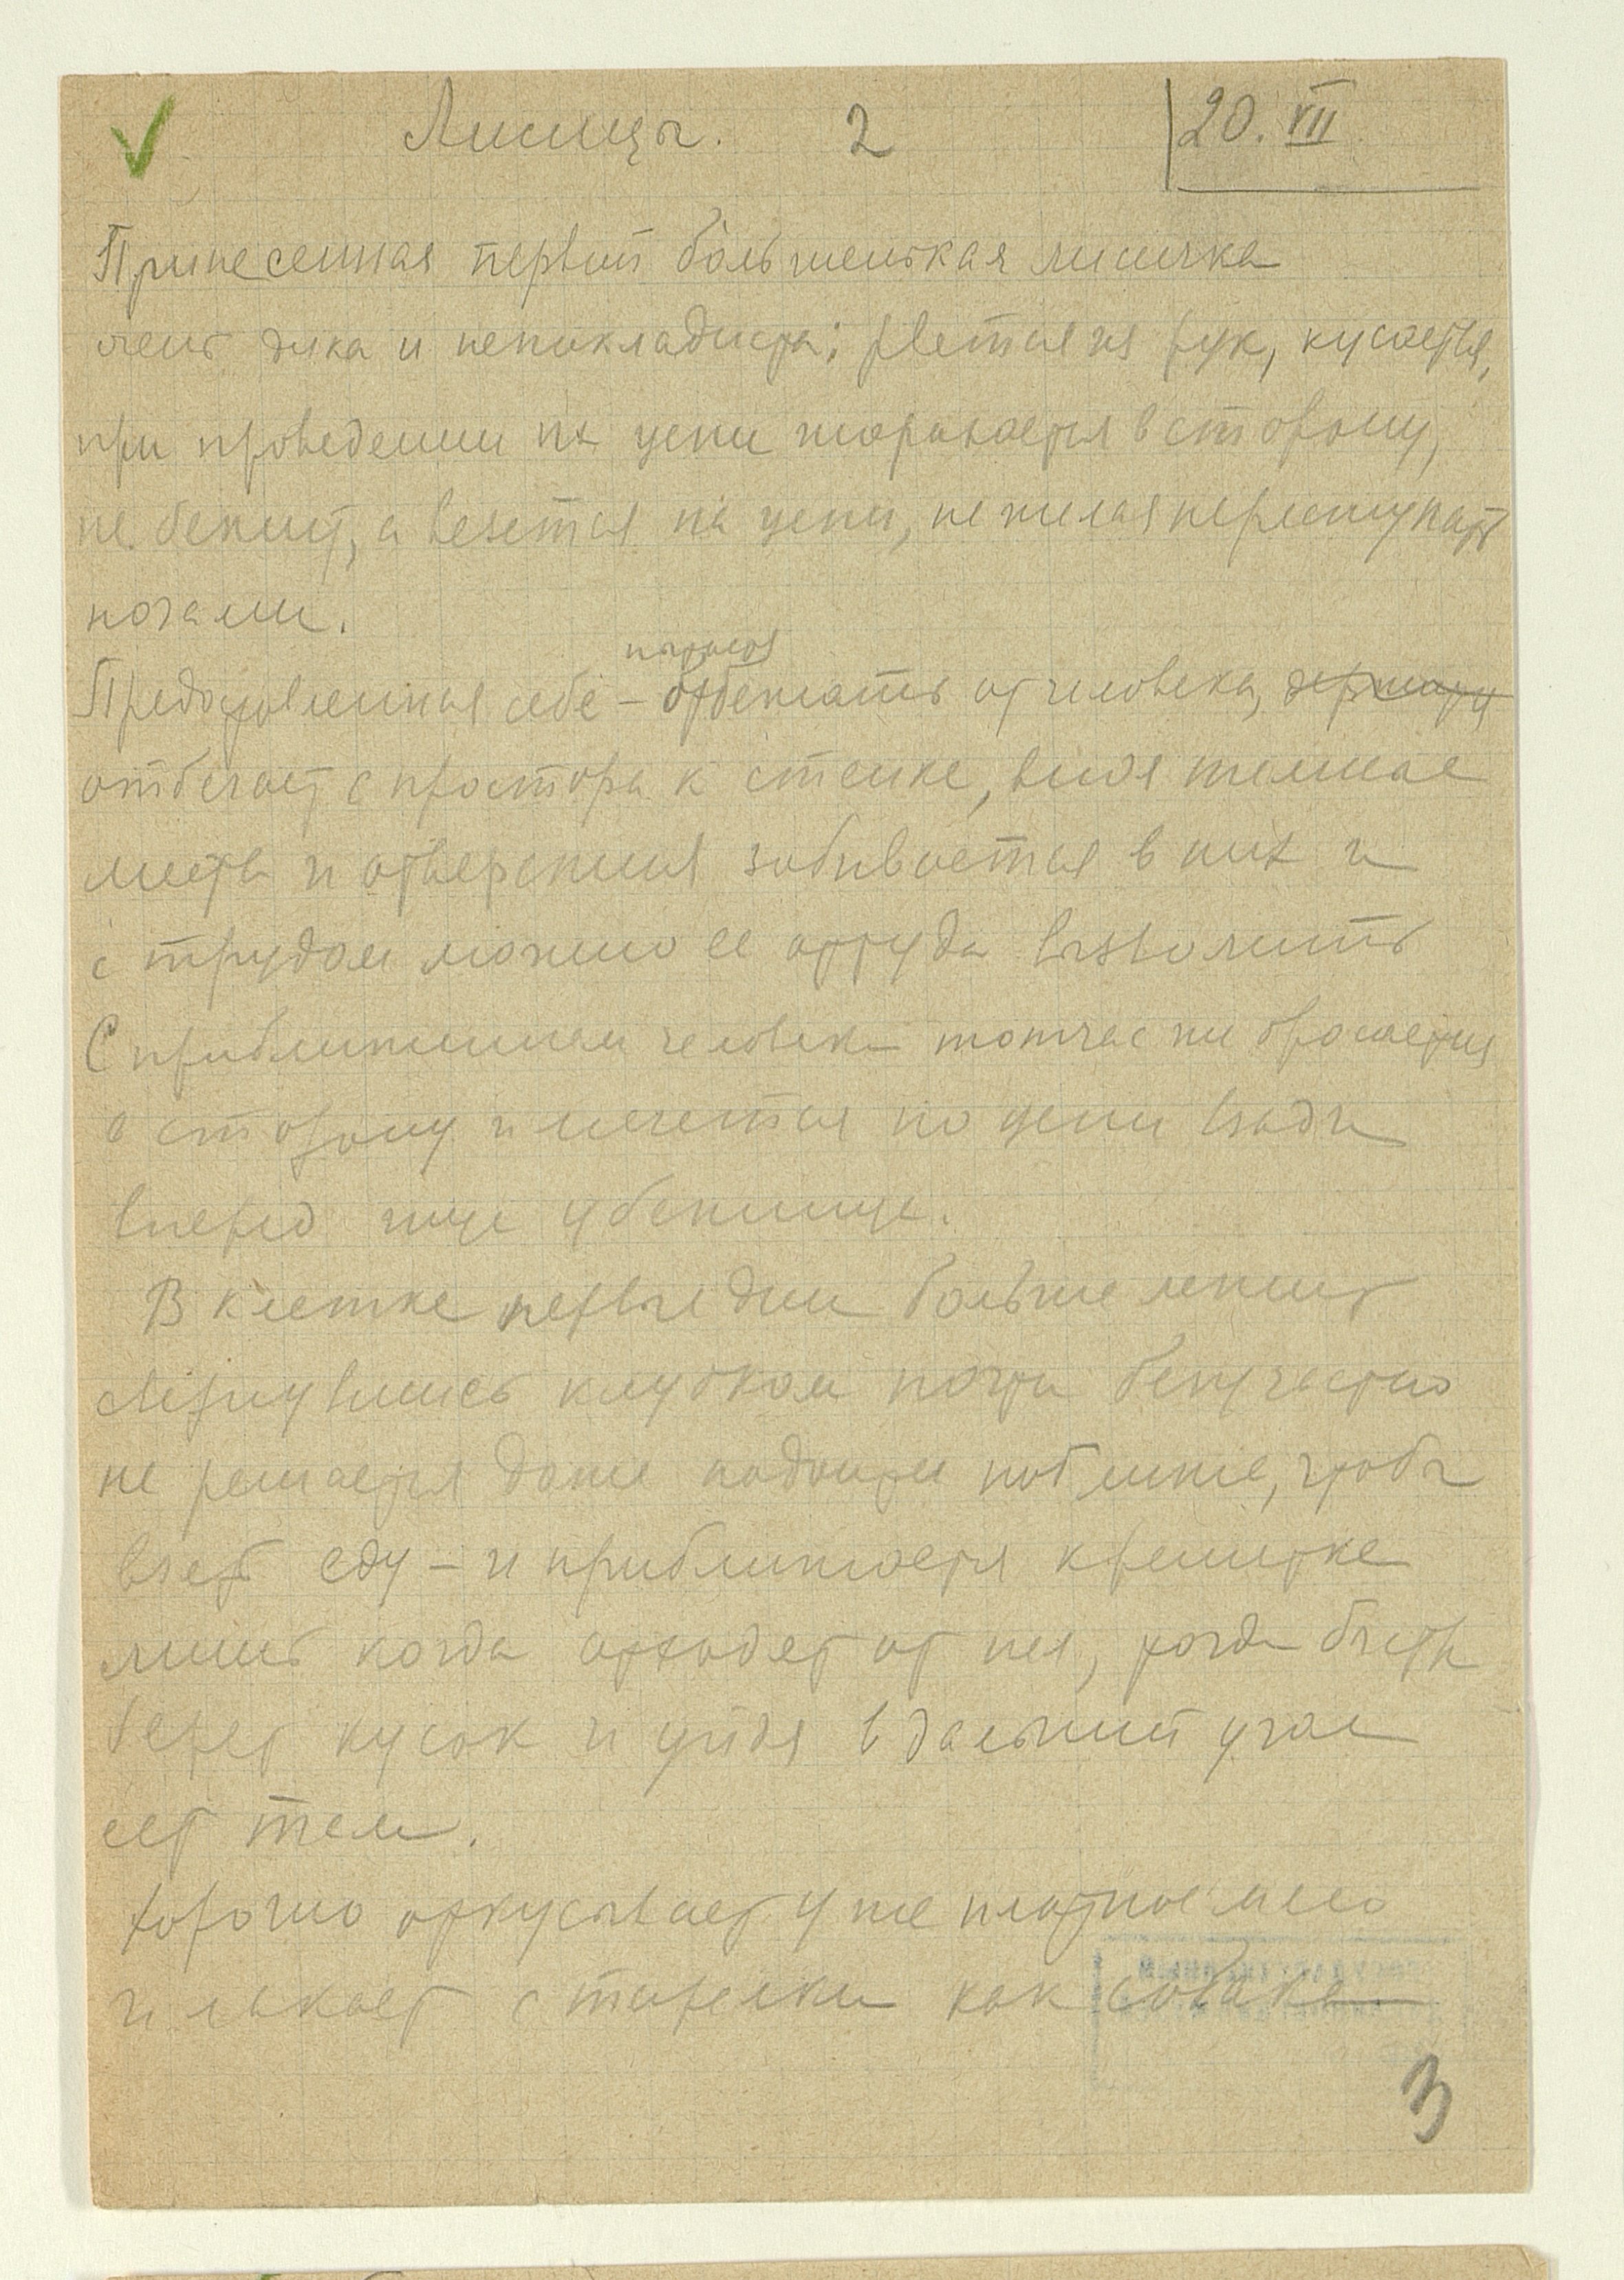 Лисицы. 2 20. VII
Принесенная первой большенькая лисичка
очень дика и непокладиста; рвется из рук, кусается,
при проведении на цепи шарахается в сторону,
не бежит, а везется на цепи, не желая переступать
ногами.
пытается
Предоставленная себе – отбежать от человека,
отбегает с простора к стенке, видя темные
места и отверстия забивается в них и
с трудом можно ее оттуда вызволить
С приближением человека тотчас же бросается
в сторону и мечется по цепи взад и
вперед ища убежище.
В клетке первые дни больше лежит
свернувшись клубком почти безучастно
не решается даже подойти поближе, чтобы
взять еду – и приближается к решетке
лишь когда отходят от нея, тогда быстро
берет кусок и уйдя в дальний угол
ест там.
Хорошо откусывает уже плотное мясо
и лакает с тарелки как собака
3